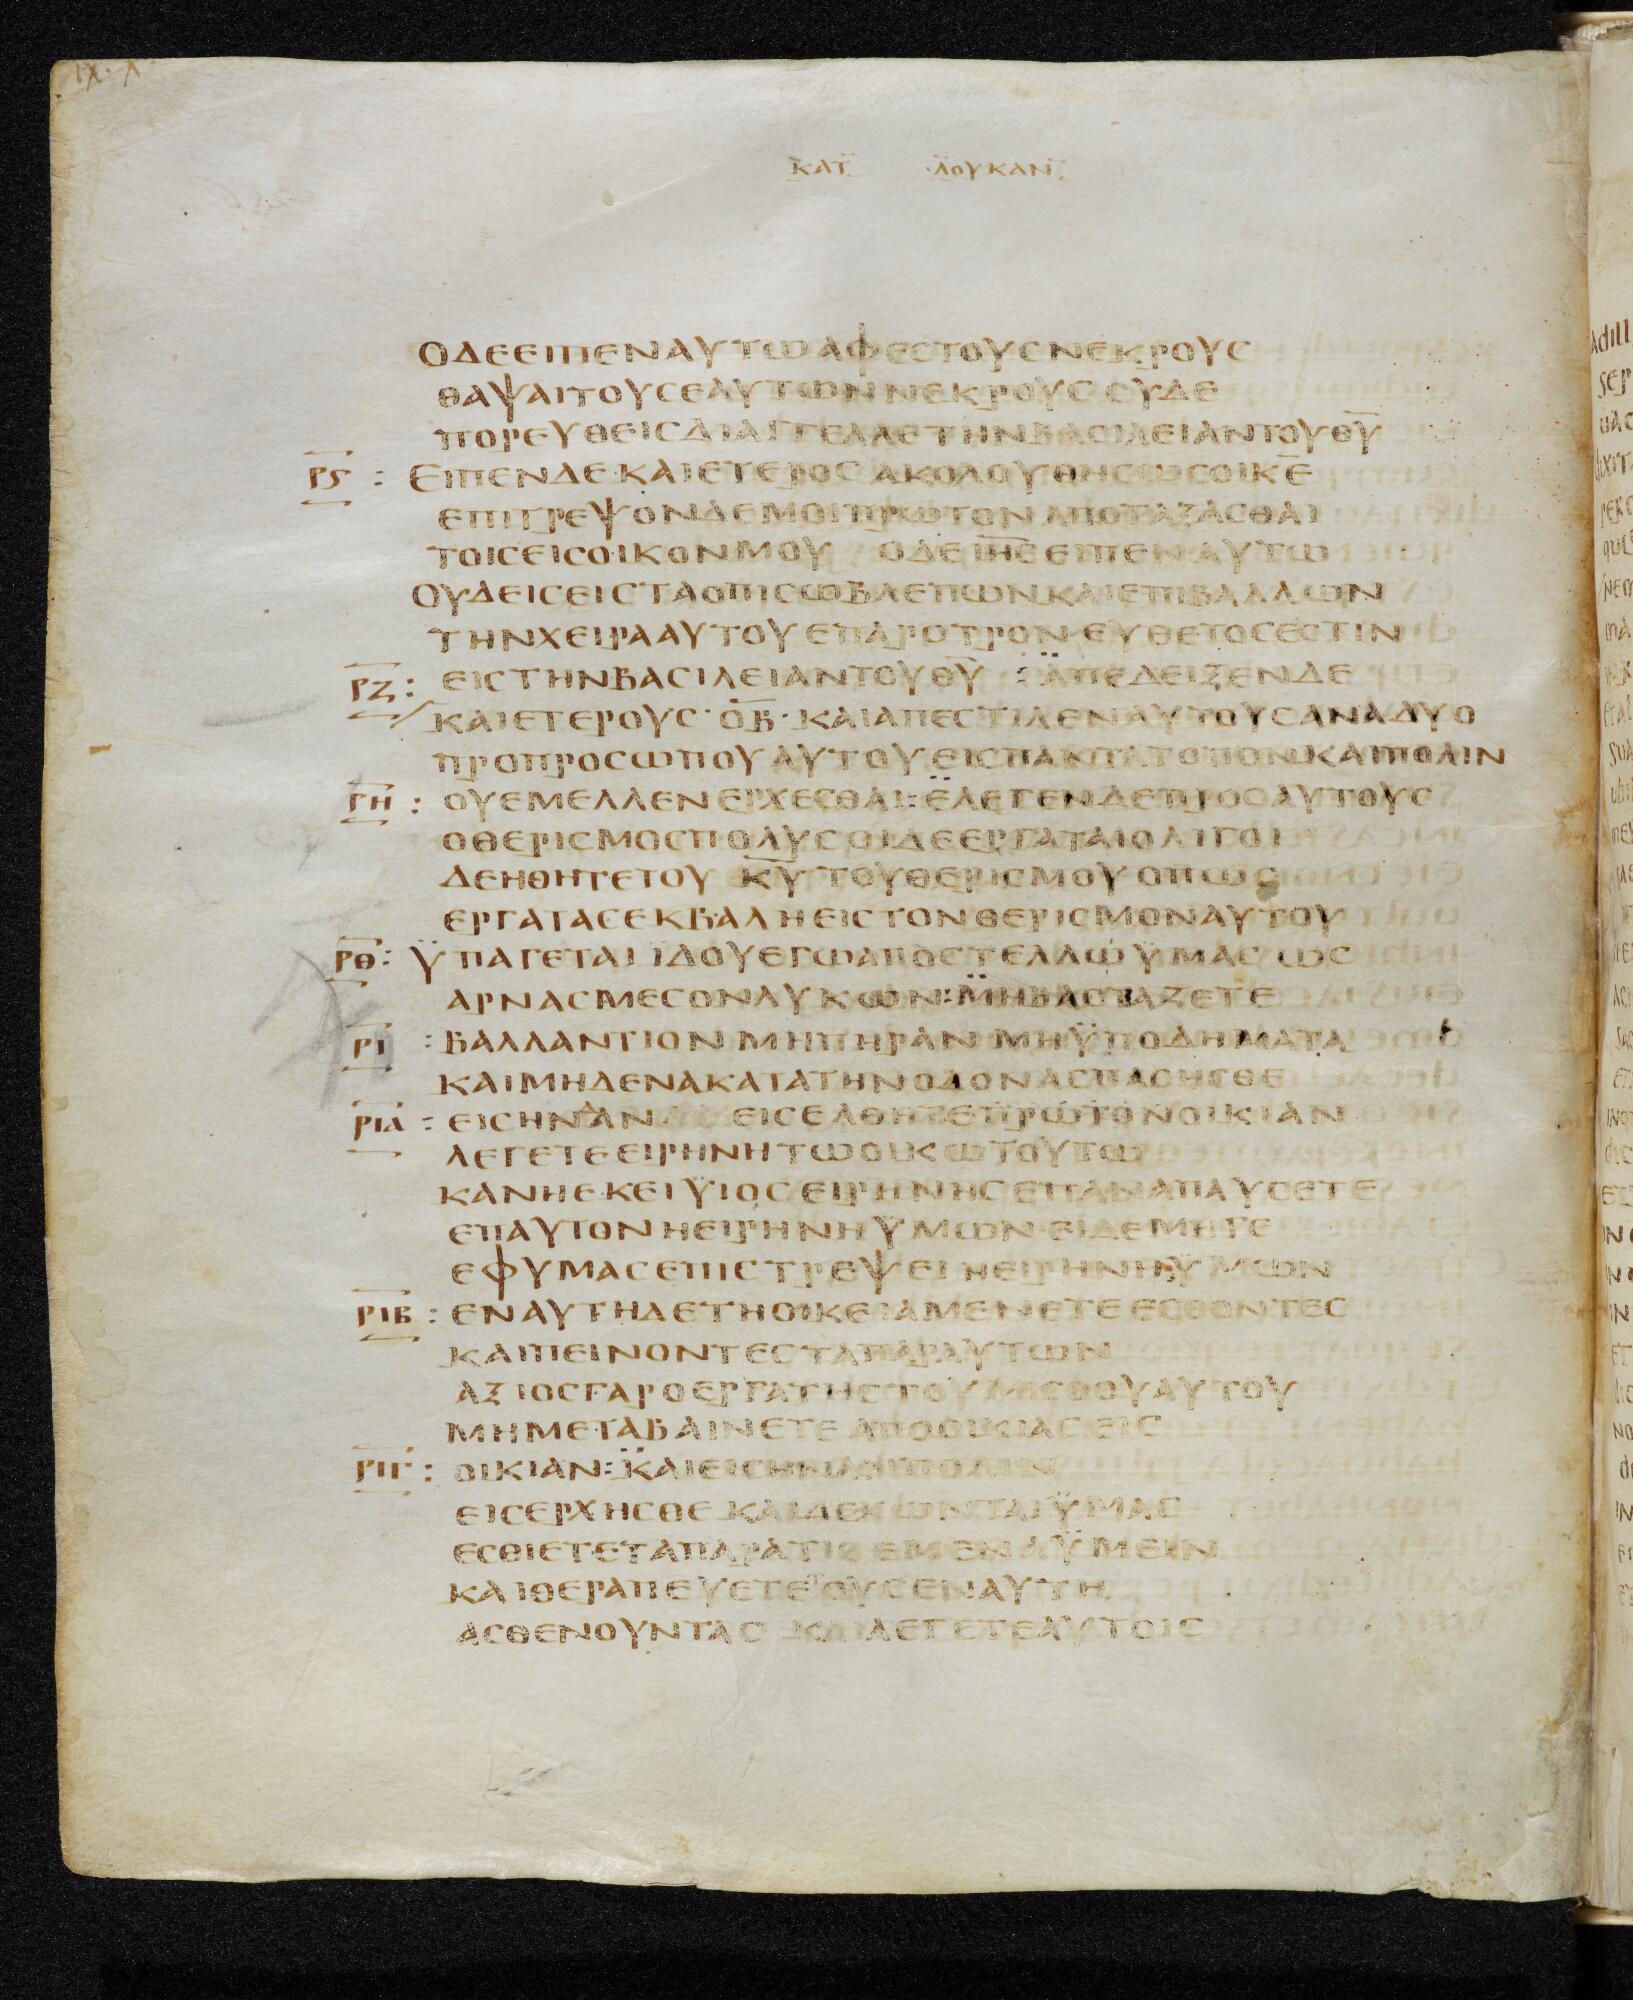 ΙΧ. Χ
ΚΑΤ ΛΟΥΚΑΝ
ΟΔΕΕΙΠΕΝΑΥΤΩΑΦΕΣΤΟΥΣΝΕΚΡΟΥΣ
ΘΑΨΑΙΤΟΥΣΕΑΥΤΩΝΝΕΚΡΟΥΣ ΣΥΔΕ
ΠΟΡΕΥΘΕΙΣΔΙΑΓΓΕΛΛΕΤΗΝΒΑΣΙΛΕΙΑΝΤΟΥΘ̅Υ̅
Ρ̅Ϛ̅ : ΕΙΠΕΝΔΕ·ΚΑΙΕΤΕΡΟΣ ΑΚΟΛΟΥΘΗΣΩΣΟΙΚ̅Ε̅
ΕΠΙΤΡΕΨΟΝΔΕΜΟΙΠΡΩΤΟΝ ΑΠΟΤΑΞΑΣΘΑΙ
ΤΟΙΣΕΙΣΟΙΚΟΝΜΟΥ ΟΔΕΙ̅Η̅Σ̅ΕΙΠΕΝΑΥΤΩ
ΟΥΔΕΙΣΕΙΣΤΑΟΠΙΣΩΒΛΕΠΩΝΚΑΙΕΠΙΒΑΛΛΩΝ
ΤΗΝΧΕΙΡΑΑΥΤΟΥΕΠΑΡΟΤΡΟΝ ΕΥΘΕΤΟΣΕΣΤΙΝ
Ρ̅Ζ̅ : ΕΙΣΤΗΝΒΑΣΙΛΕΙΑΝΤΟΥΘ̅Υ̅ : ΑΠΕΔΕΙΞΕΝΔΕ
ΚΑΙΕΤΕΡΟΥΣ·Ο̅Β̅·ΚΑΙΑΠΕΣΤΙΛΕΝΑΥΤΟΥΣΑΝΑΔΥΟ
ΠΡΟΠΡΟΣΩΠΟΥΑΥΤΟΥΕΙΣΠΑΝΤΑΤΟΠΟΝΚΑΙΠΟΛΙΝ
Ρ̅Η̅ : ΟΥΕΜΕΛΛΕΝΕΡΧΕΣΘΑΙ: ΕΛΕΓΕΝΔΕΠΡΟΣΑΥΤΟΥΣ
ΟΘΕΡΙΣΜΟΣΠΟΛΥΣΟΙΔΕΕΡΓΑΤΑΙΟΛΙΓΟΙ
ΔΕΗΘΗΤΕΤΟΥ Κ̅Υ̅ ΤΟΥΘΕΡΙΣΜΟΥΟΠΩΣ
ΕΡΓΑΤΑΣΕΚΒΑΛΗΕΙΣΤΟΝΘΕΡΙΣΜΟΝΑΥΤΟΥ
Ρ̅Θ̅ : ΫΠΑΓΕΤΑΙ ΪΔΟΥΕΓΩΑΠΟΣΤΕΛΛΩΫΜΑΣ ΩΣ
ΑΡΝΑΣΜΕΣΟΝΛΥΚΩΝ: ΜΗΒΑΣΤΑΖΕΤΕ
Ρ̅Ι̅ : ΒΑΛΛΑΝΤΙΟΝ ΜΗΠΗΡΑΝ ΜΗΫΠΟΔΗΜΑΤΑ
ΚΑΙΜΗΔΕΝΑΚΑΤΑΤΗΝΟΔΟΝΑΣΠΑΣΗΣΘΕ
Ρ̅Ι̅Α̅ : ΕΙΣΗΝΔΑΝ ΕΙΣΕΛΘΗΤΕΠΡΩΤΟΝΟΙΚΙΑΝ
ΛΕΓΕΤΕΕΙΡΗΝΗΤΩΟΙΚΩΤΟΥΤΩ
ΚΑΝΗΕΚΕΙΫΙΟΣΕΙΡΗΝΗΣΕΠΑΝΑΠΑΥΣΕΤΕ
ΕΠΑΥΤΟΝΗΕΙΡΗΝΗΫΜΩΝ ΕΙΔΕΜΗΓΕ
ΕΦΥΜΑΣΕΠΙΣΤΡΕΨΕΙΗΕΙΡΗΝΗΫΜΩΝ
Ρ̅Ι̅Β̅ : ΕΝΑΥΤΗΔΕΤΗΟΙΚΕΙΑΜΕΝΕΤΕΕΣΘΟΝΤΕΣ
ΚΑΙΠΕΙΝΟΝΤΕΣΤΑΠΑΡΑΥΤΩΝ
ΑΞΙΟΣΓΑΡΟΕΡΓΑΤΗΣΤΟΥΜΙΣΘΟΥΑΥΤΟΥ
ΜΗΜΕΤΑΒΑΙΝΕΤΕΑΠΟΟΙΚΙΑΣΕΙΣ
Ρ̅Ι̅Γ̅ : ΟΙΚΙΑΝ: ΚΑΙΕΙΣΗΝΑΝΠΟΛΙΝ
ΕΙΣΕΡΧΗΣΘΕ ΚΑΙΔΕΧΩΝΤΑΙΫΜΑΣ
ΕΣΘΙΕΤΕΤΑΠΑΡΑΤΙΘΕΜΕΝΑΫΜΕΙΝ
ΚΑΙΘΕΡΑΠΕΥΕΤΕΤΟΥΣΕΝΑΥΤΗ
ΑΣΘΕΝΟΥΝΤΑΣ ΚΑΙΛΕΓΕΤΕΑΥΤΟΙΣ